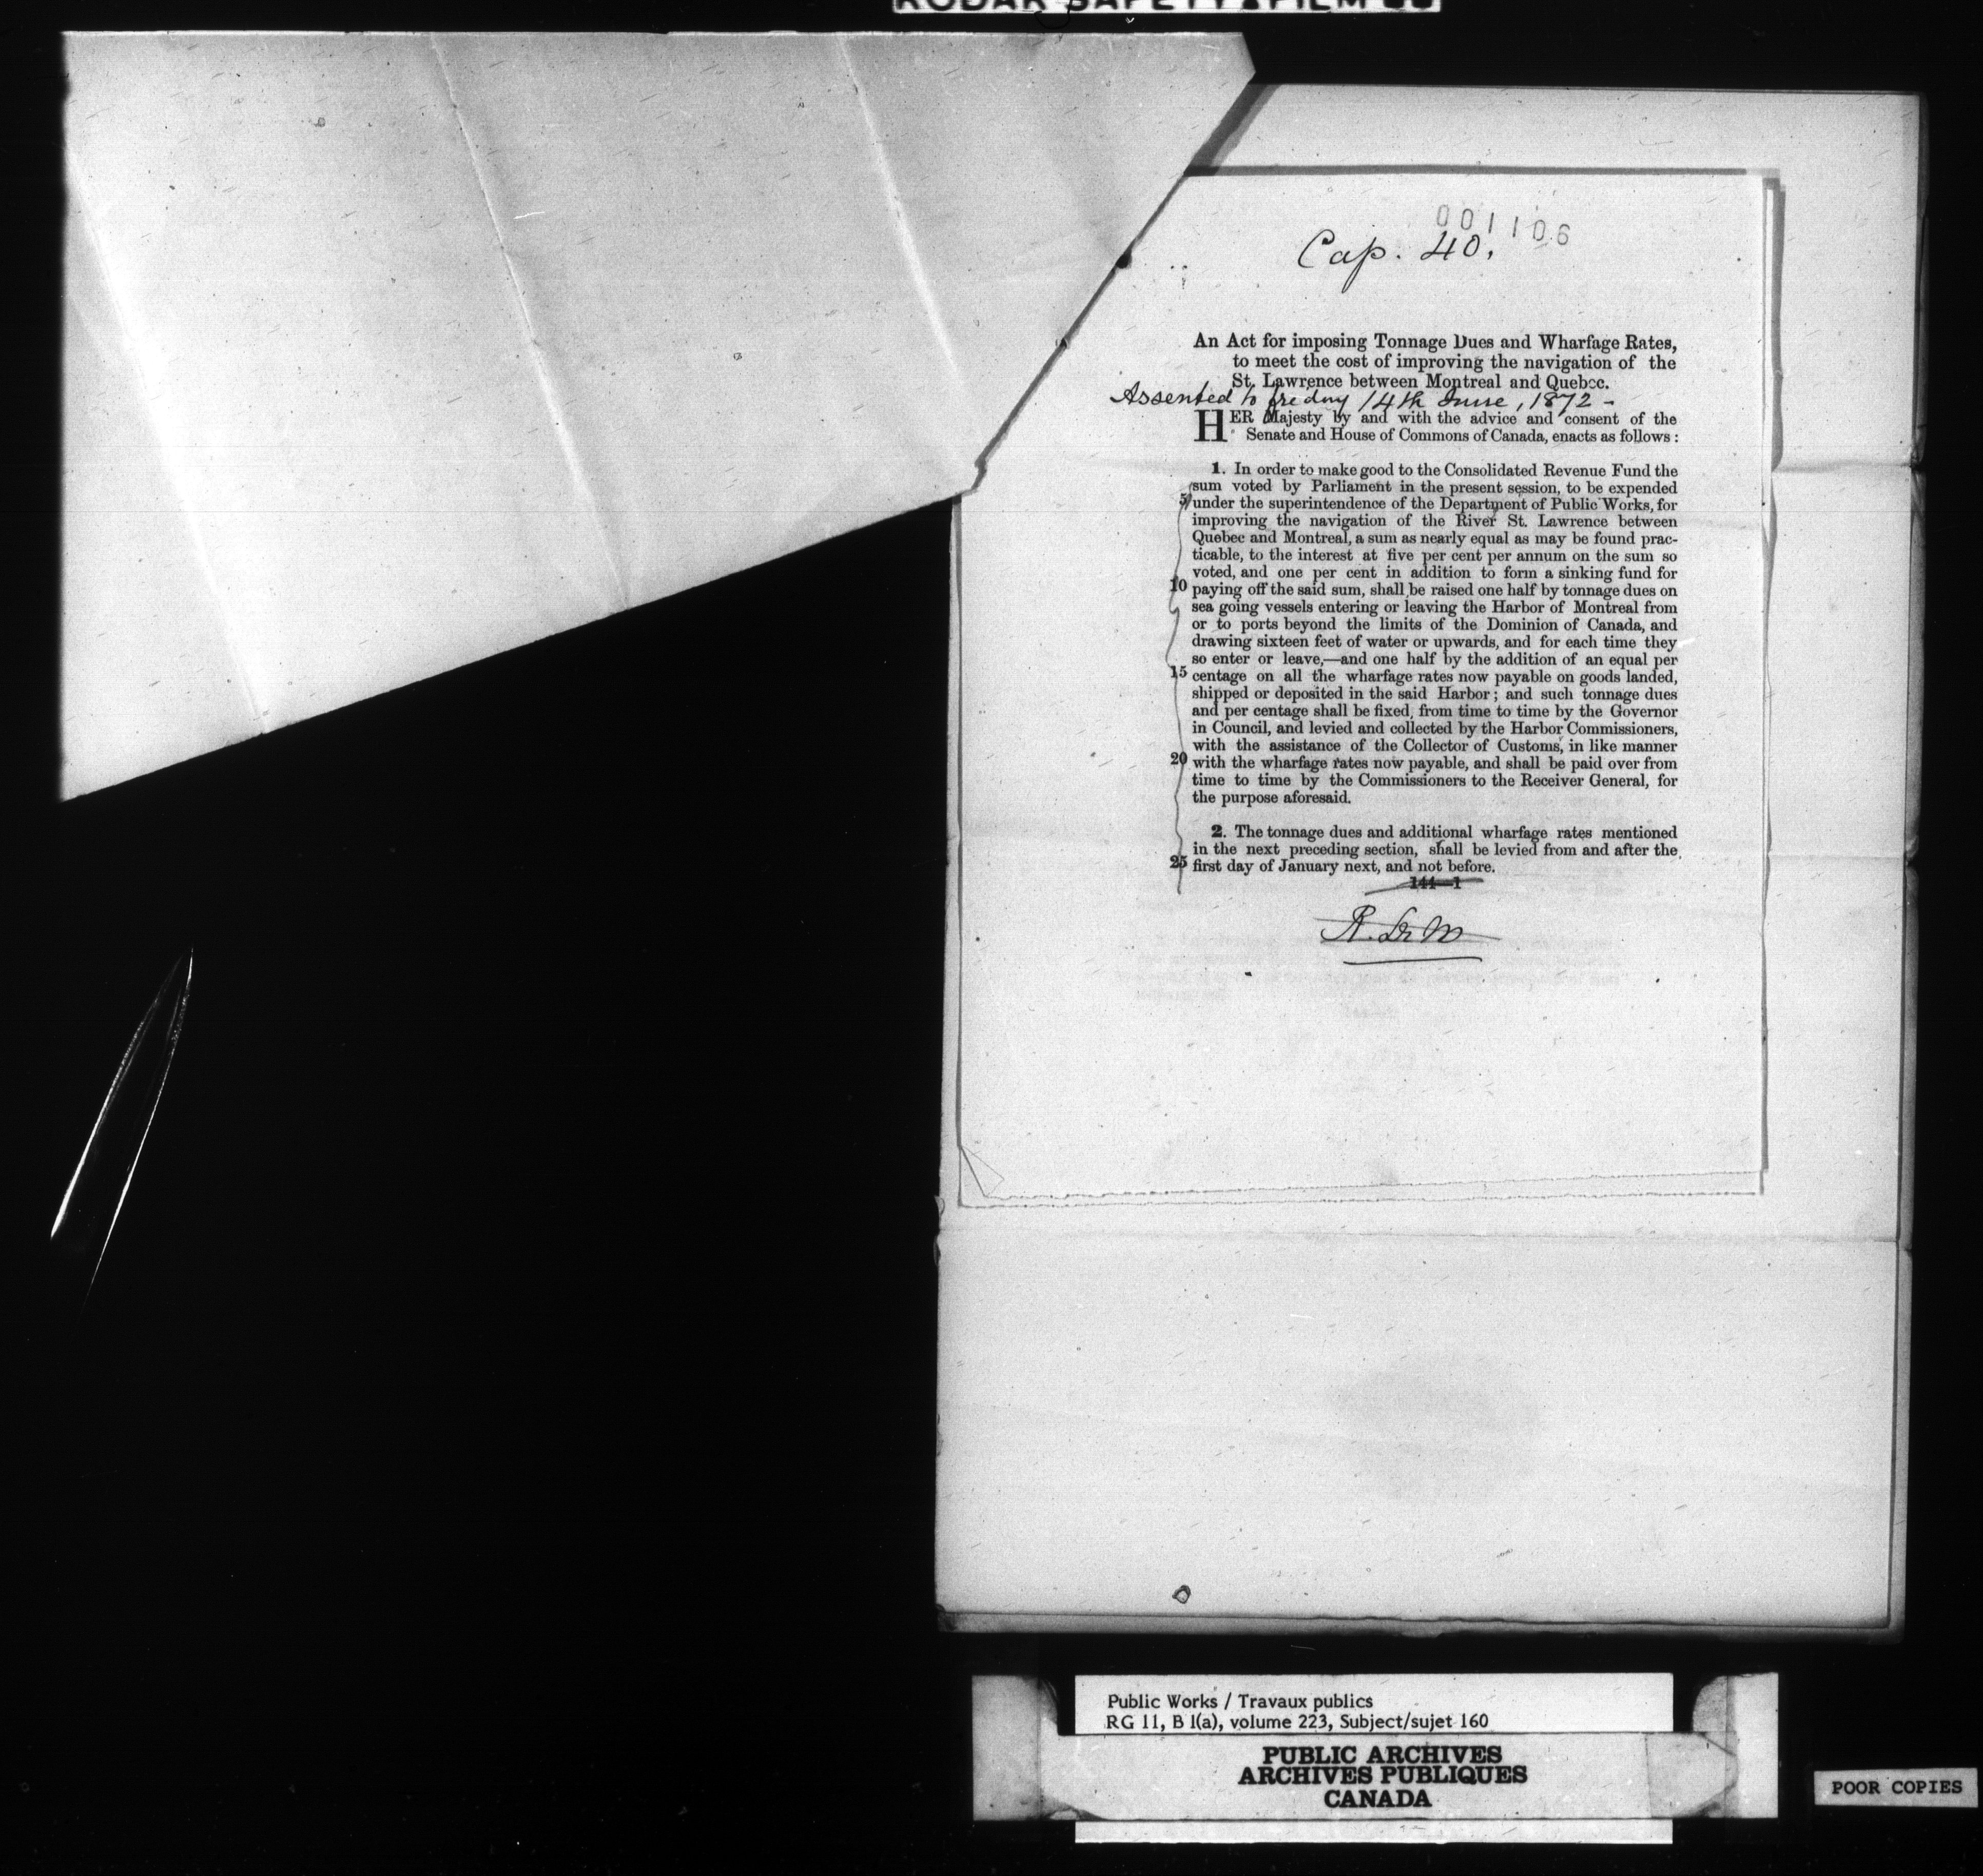 KODAK SAFETY FILM
001106
Cap. 40.
An Act for imposing Tonnage Dues and Wharfage Rates,
to meet the cost of improving the navigation of the
St. Lawrence between Montreal and Quebec.
Assented to friday 14th June, 1872 -
HER Majesty by and with the advice and consent of the
Senate and House of Commons of Canada, enacts as follows :
1. In order to make good to the Consolidated Revenue Fund the
sum voted by Parliament in the present session, to be expended
5 under the superintendence of the Department of Public Works, for
improving the navigation of the River St. Lawrence between
Quebec and Montreal, a sum as nearly equal as may be found prac-
ticable, to the interest at five per cent per annum on the sum so
voted, and one per cent in addition to form a sinking fund for
10 paying off the said sum, shall be raised one half by tonnage dues on
sea going vessels entering or leaving the Harbor of Montreal from
or to ports beyond the limits of the Dominion of Canada, and
drawing sixteen feet of water or upwards, and for each time they
so enter or leave,—and one half by the addition of an equal per
15 centage on all the wharfage rates now payable on goods landed,
shipped or deposited in the said Harbor ; and such tonnage dues
and per centage shall be fixed, from time to time by the Governor
in Council, and levied and collected by the Harbor Commissioners,
with the assistance of the Collector of Customs, in like manner
20 with the wharfage rates now payable, and shall be paid over from
time to time by the Commissioners to the Receiver General, for
the purpose aforesaid.
2. The tonnage dues and additional wharfage rates mentioned
in the next preceding section, shall be levied from and after the
25 first day of January next, and not before.
144—1
Public Works / Travaux publics
RG 11, B 1(a), volume 223, Subject/sujet 160
PUBLIC ARCHIVES
ARCHIVES PUBLIQUES
CANADA
POOR COPIES